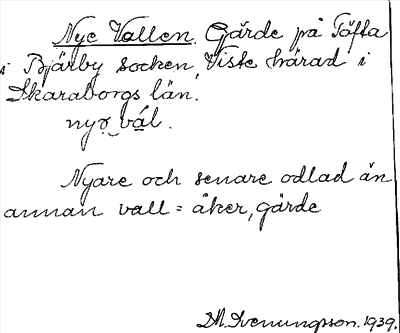 Nye Vallen. Gärde på Töfta
i Bjärby socken, Viste härad i
Skaraborgs län.
nyo vál.
Nyare och senare odlad än
annan vall = åker, gärde
D.M. Svenungsson. 1939.